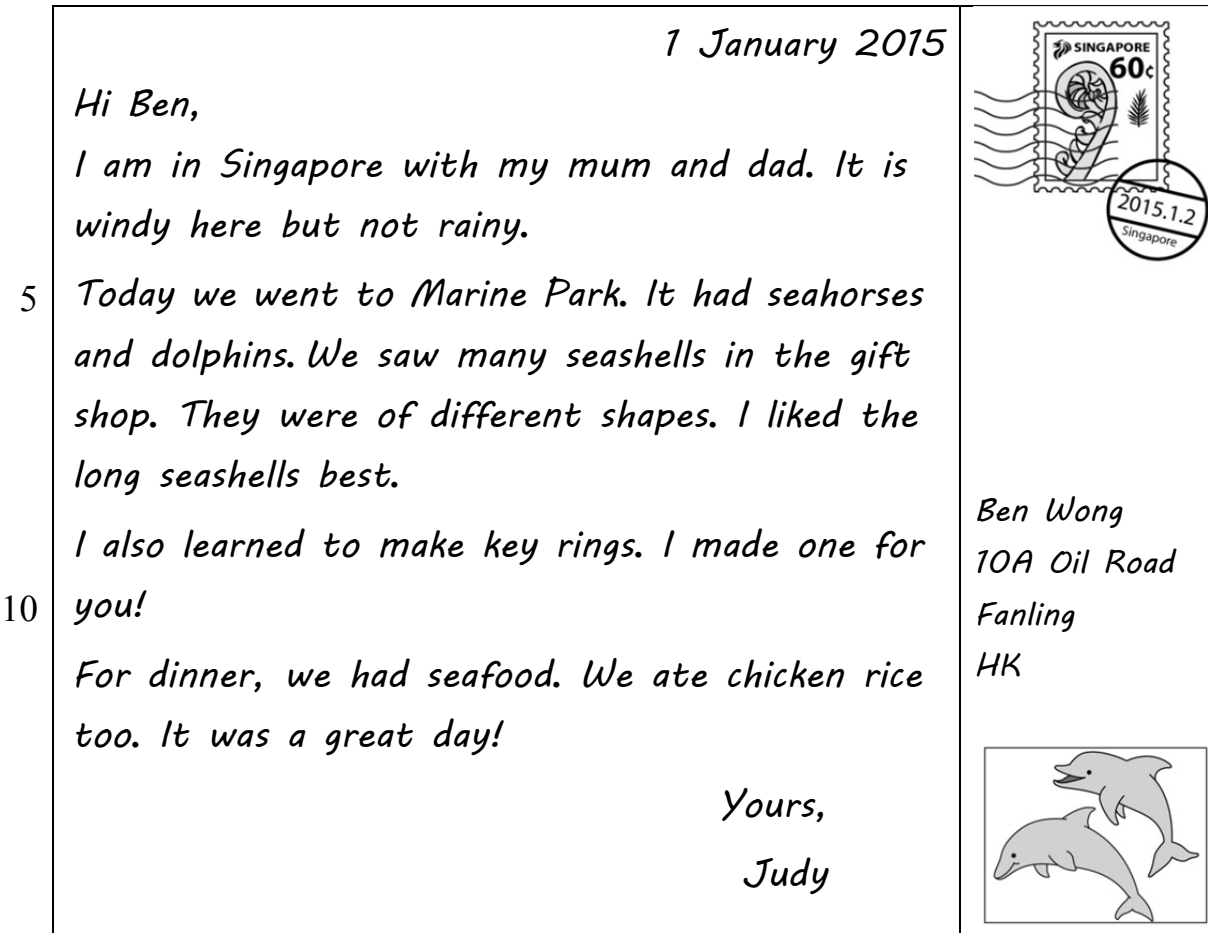 1 January 2015
Hi Ben,
I am in Singapore with my mum and dad. It is
windy here but not rainy.
5 Today we went to Marine Park. It had seahorses
and dolphins. We saw many seashells in the gift
shop. They were of different shapes. I liked the
long seashells best.
I also learned to make key rings. I made one for
10 you!
For dinner, we had seafood. We ate chicken rice
too. It was a great day!
Yours,
Judy
SINGAPORE
60¢
2015.1.2
Singapore
Ben Wong
10A Oil Road
Fanling
HK